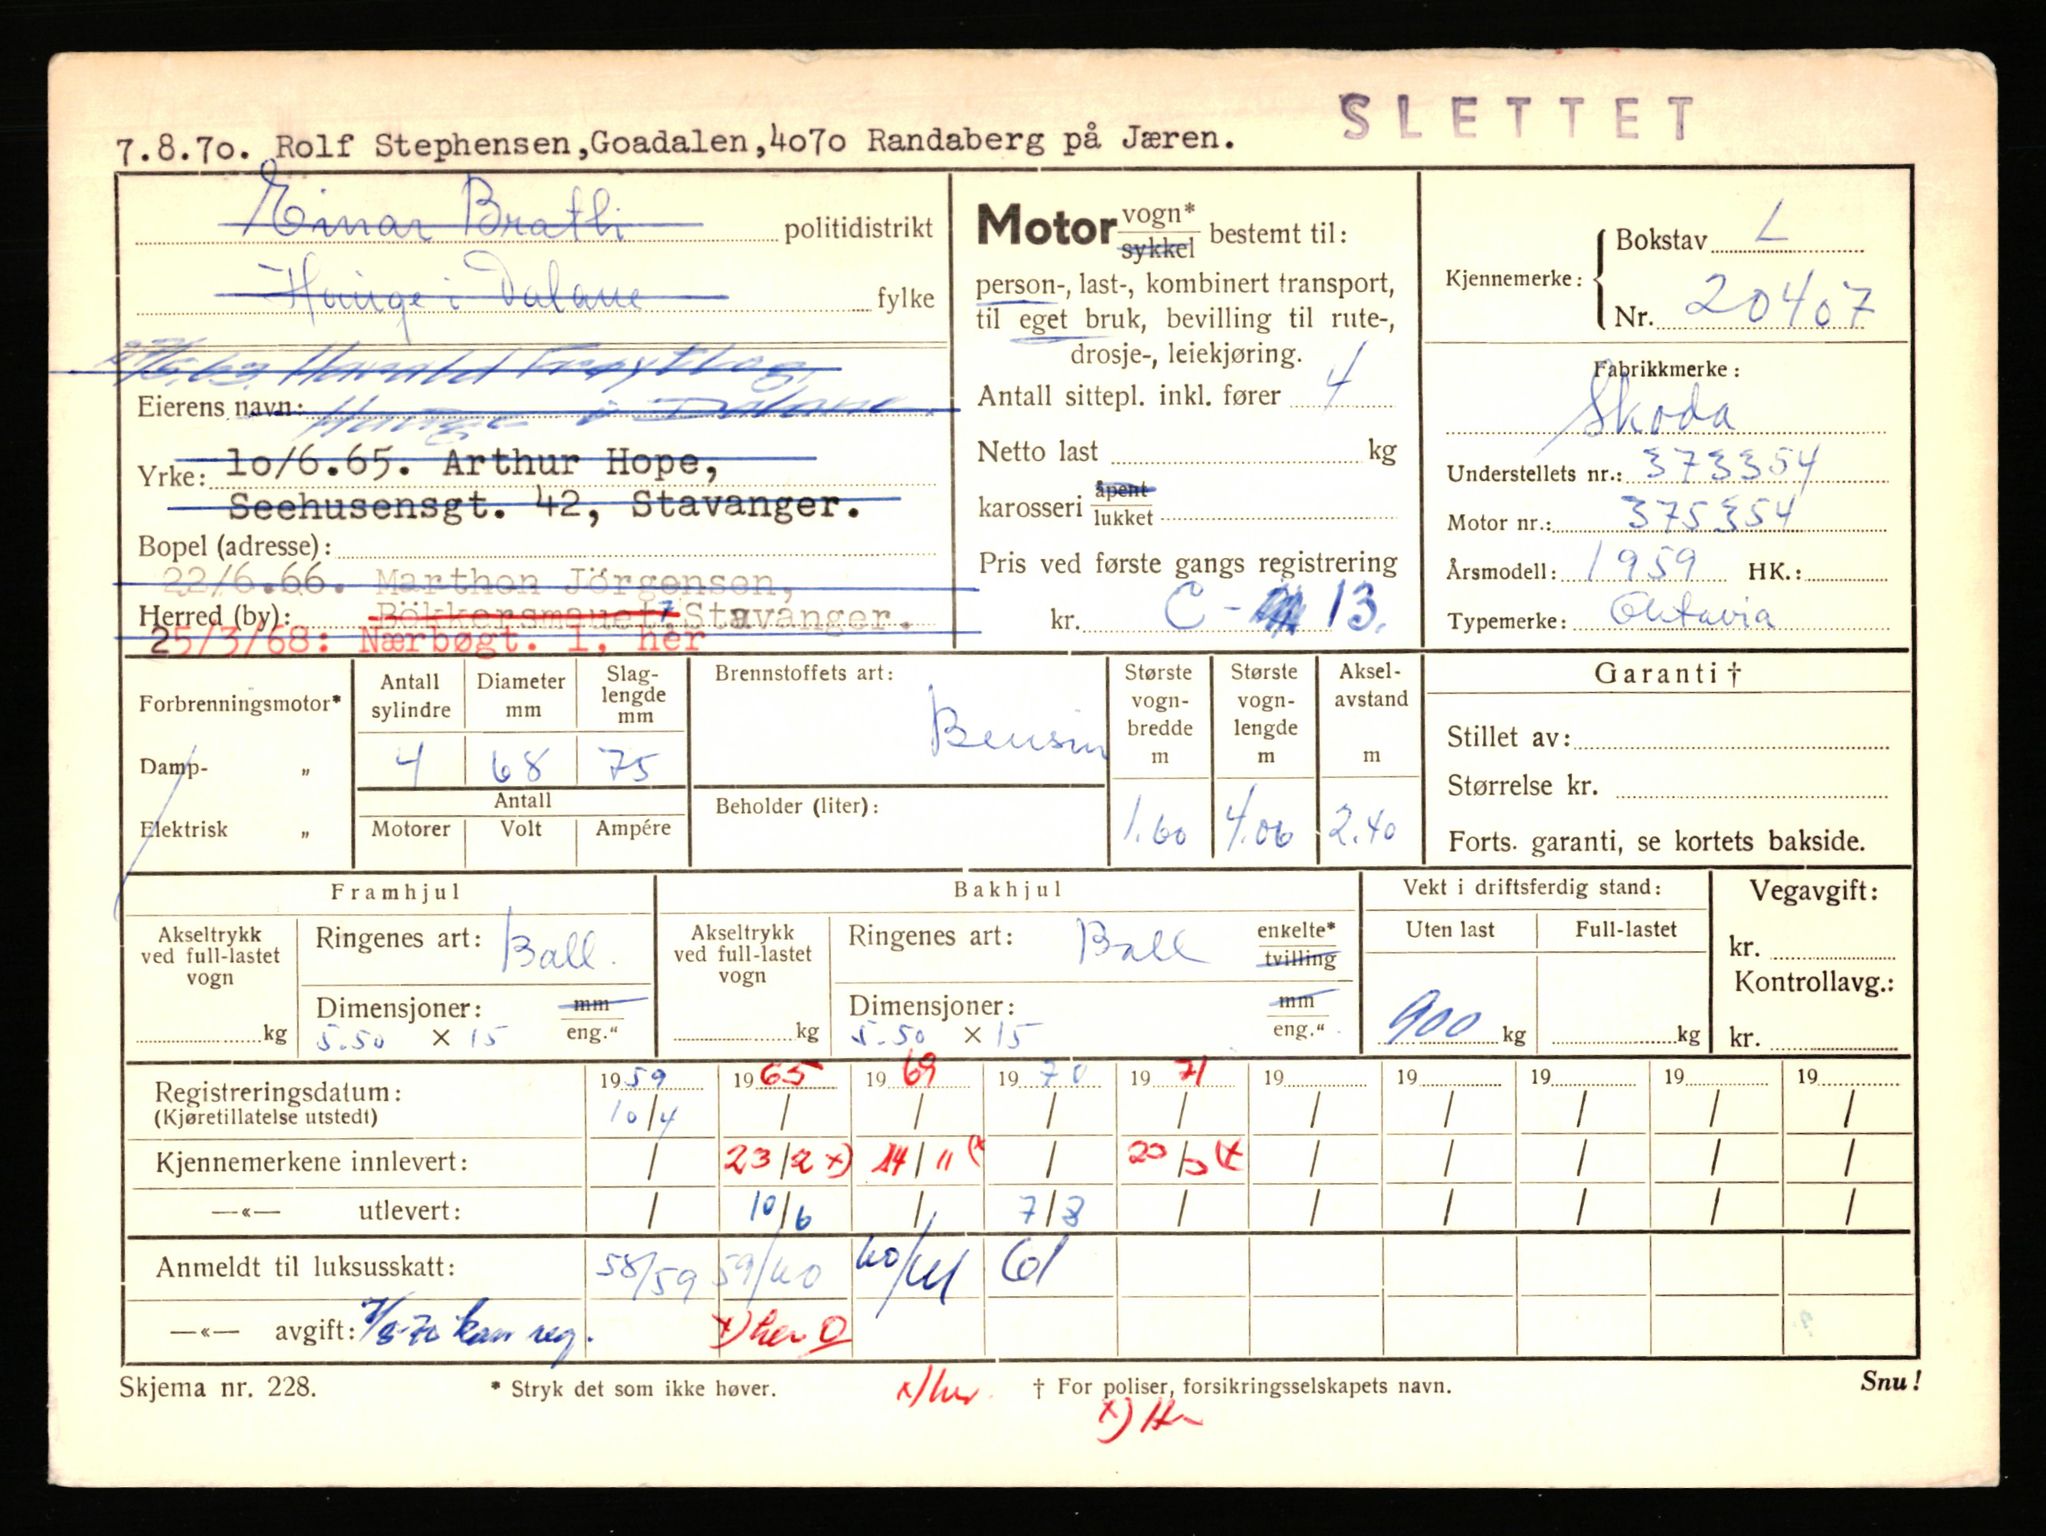 SLETTET
7.8.70. Rolf Stephensen,Goadalen,4070 Randaberg på Jæren.
Einar Bratli politidistrikt
Hauge i Dalane fylke
Harald
Eierens navn: Hauge i Dalane
Yrke: 10/6.65. Arthur Hope,
Seehusensgt. 42, Stavanger.
Bopel (adresse):
22/6.66. Marthon Jörgensen,
Herred (by): Bökkersmauet 7 Stavanger.
25/3/68: Nærbøgt. 1, her
Motor vogn* sykkel bestemt til:
person-, last-, kombinert transport,
til eget bruk, bevilling til rute-,
drosje-, leiekjøring.
Antall sittepl. inkl. fører 4
Netto last kg
karosseri åpent lukket
Pris ved første gangs registrering
kr. C - 13.
Kjennemerke: Bokstav L
Nr. 20407
Fabrikkmerke:
Skoda
Understellets nr.: 373354
Motor nr.: 375354
Årsmodell: 1959 HK.:
Typemerke: Oktavia
Forbrenningsmotor*
Damp- „
Elektrisk „
Antall sylindre 4
Diameter mm 68
Slag-lengde mm 75
Antall
Motorer Volt Ampére
Brennstoffets art:
Bensin
Beholder (liter):
Største vogn-bredde m 1.60
Største vogn-lengde m 4.06
Aksel-avstand m 2.40
Garanti †
Stillet av:
Størrelse kr.
Forts. garanti, se kortets bakside.
Framhjul
Akseltrykk ved full-lastet vogn kg
Ringenes art: Ball.
Dimensjoner: mm
5.50 × 15 eng."
Bakhjul
Akseltrykk ved full-lastet vogn kg
Ringenes art: Ball enkelte* tvilling
Dimensjoner: mm
5.50 × 15 eng."
Vekt i driftsferdig stand:
Uten last Full-lastet
900 kg kg
Vegavgift:
kr.
Kontrollavg.:
kr.
1959 1965 1969 1970 1971 19 19 19 19 19
Registreringsdatum:
(Kjøretillatelse utstedt) 10/4 / / / / / / / / /
Kjennemerkene innlevert: / 23/2 x) 14/11 (x / / / / / /
—«— utlevert: / 10/6 / 7/8 / / / / / /
Anmeldt til luksusskatt: 58/59 59/60 60/61 61
—«— avgift: 7/8-70 kan reg. x) her O
Skjema nr. 228. * Stryk det som ikke høver. x) her † For poliser, forsikringsselskapets navn. Snu!
x) Her